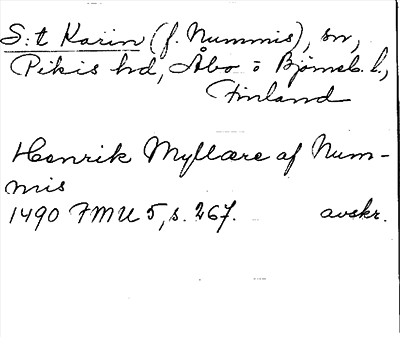 S:t Karin (f. Nummis), sn,
Pikis hd, Åbo o Björneb. l.,
Finland
Henrik Myllare af Num-
mis
1490 FMU 5, s. 267. avskr.